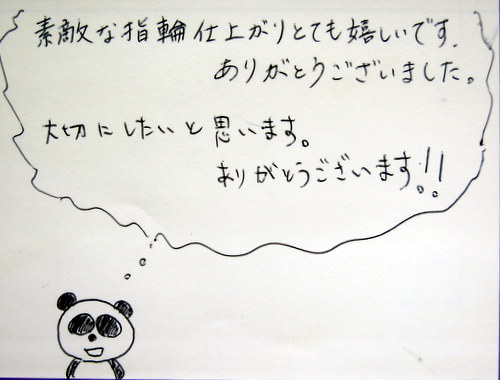 素敵な指輪仕上がりとても嬉しいです.
ありがとうございました。
大切にしたいと思います。
ありがとうございます!!